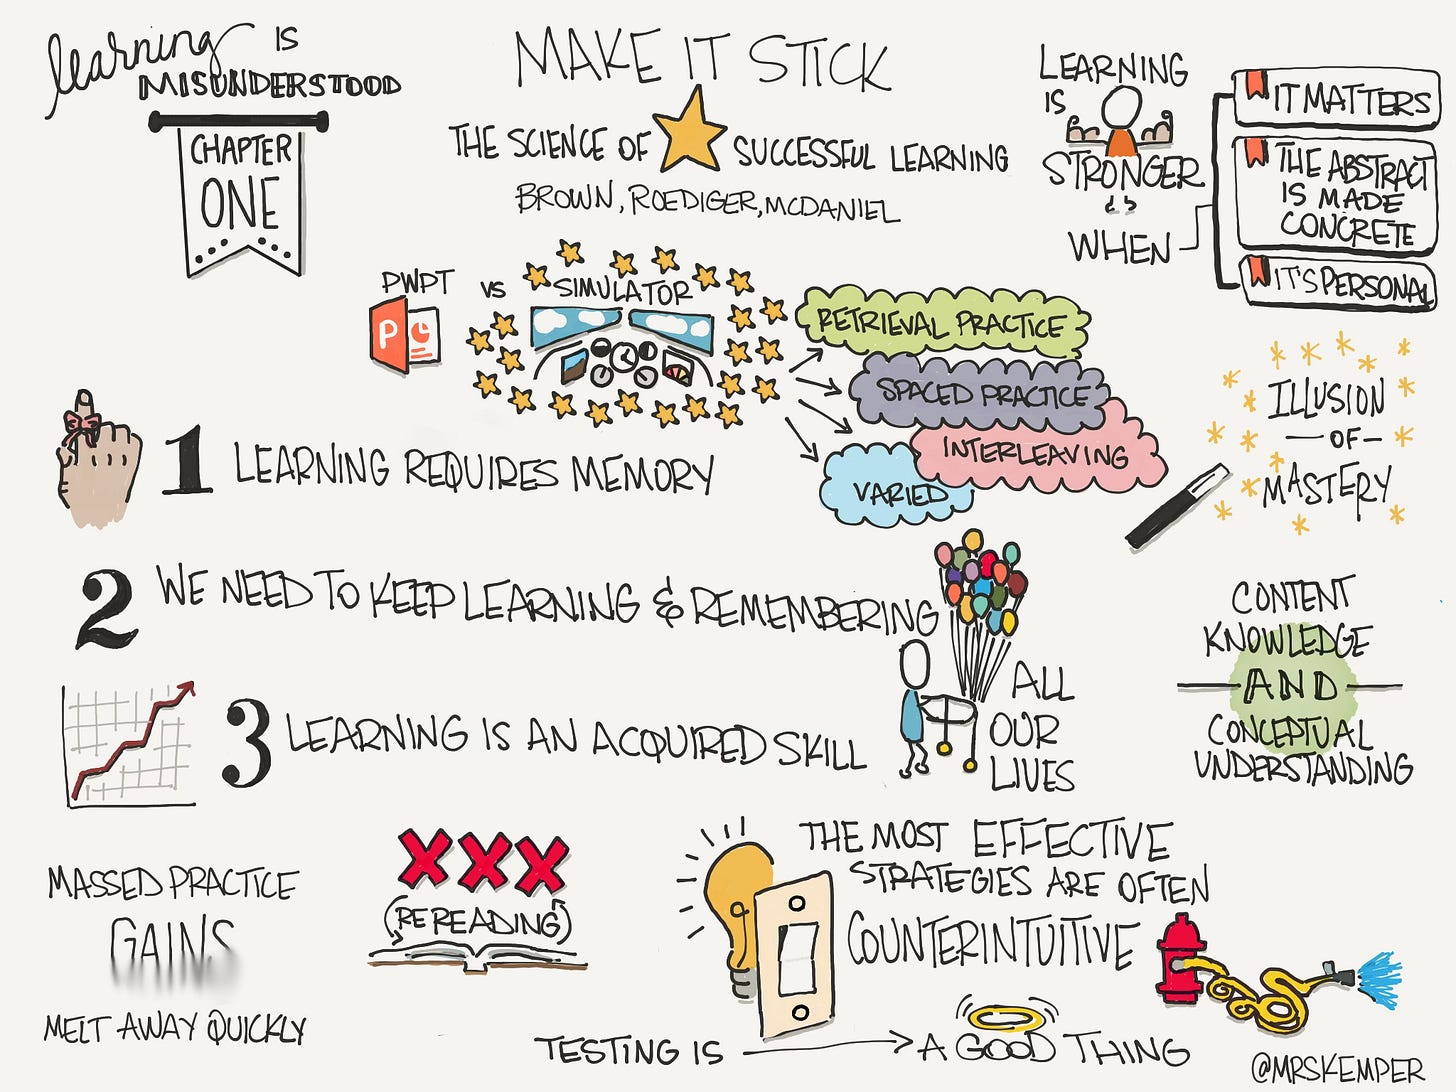 learning IS
MISUNDERSTOOD
CHAPTER
ONE
MAKE IT STICK
THE SCIENCE OF SUCCESSFUL LEARNING
BROWN, ROEDIGER, MCDANIEL
LEARNING
IS
STRONGER
WHEN
IT MATTERS
THE ABSTRACT
IS MADE
CONCRETE
IT'S PERSONAL
PWPT VS SIMULATOR
P
RETRIEVAL PRACTICE
SPACED PRACTICE
INTERLEAVING
VARIED
ILLUSION
-OF-
MASTERY
1 LEARNING REQUIRES MEMORY
2 WE NEED TO KEEP LEARNING & REMEMBERING
ALL
OUR
LIVES
3 LEARNING IS AN ACQUIRED SKILL
CONTENT
KNOWLEDGE
AND
CONCEPTUAL
UNDERSTANDING
MASSED PRACTICE
GAINS
MELT AWAY QUICKLY
XXX
(REREADING)
THE MOST EFFECTIVE
STRATEGIES ARE OFTEN
COUNTERINTUITIVE
TESTING IS → A GOOD THING
@MRSKEMPER